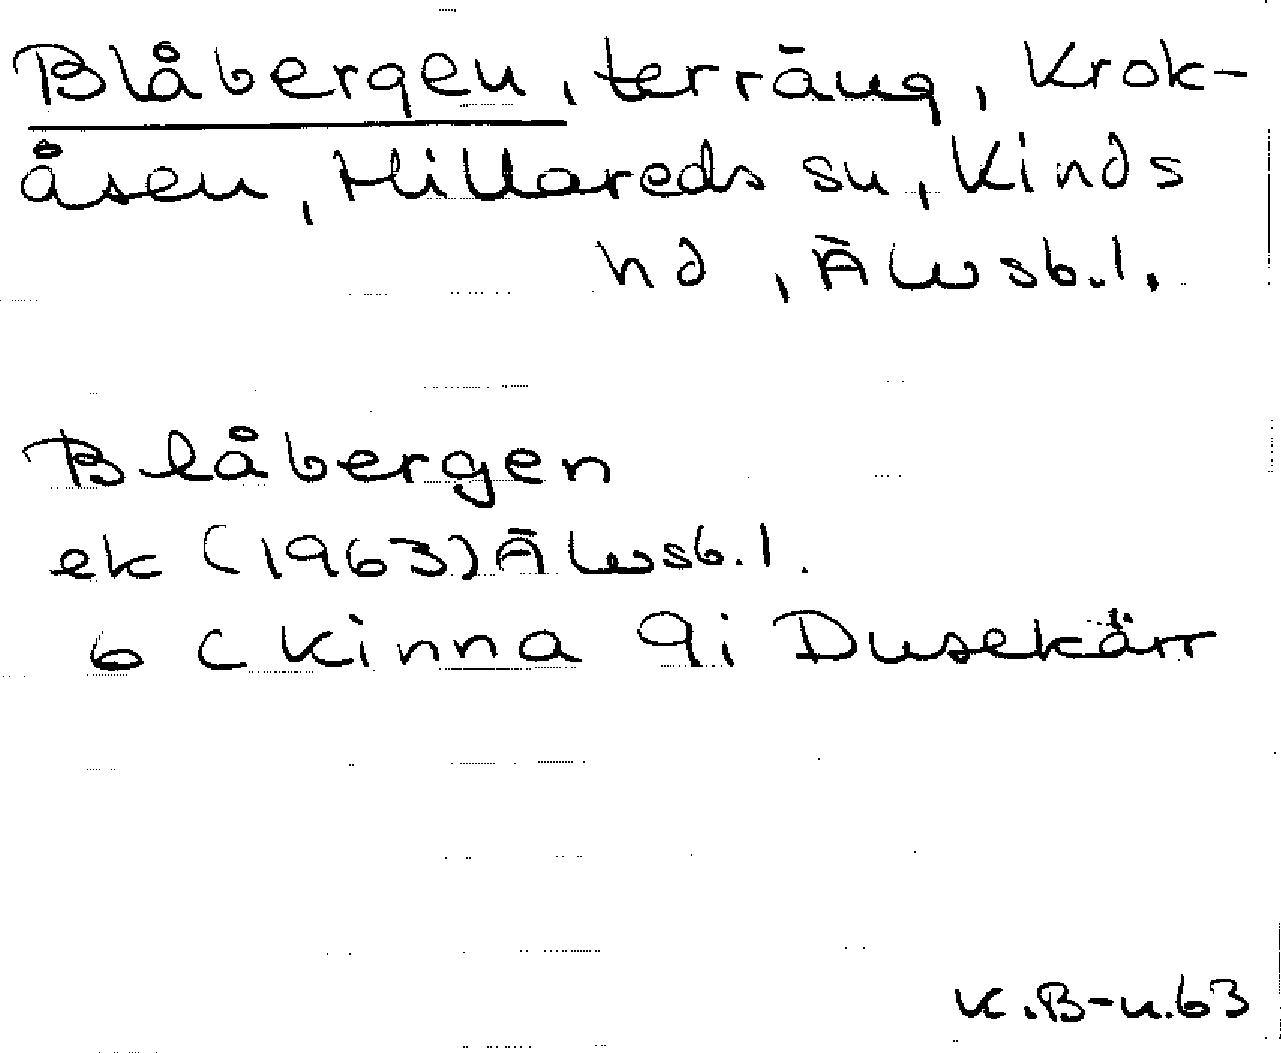 Blåbergen, terräng, Krok-
åsen, Hillareds sn, Kinds
hd, Älvsb.l.
Blåbergen
ek (1963) Älvsb.l.
6 C Kinna 9i Dusekärr
K.B-n.63